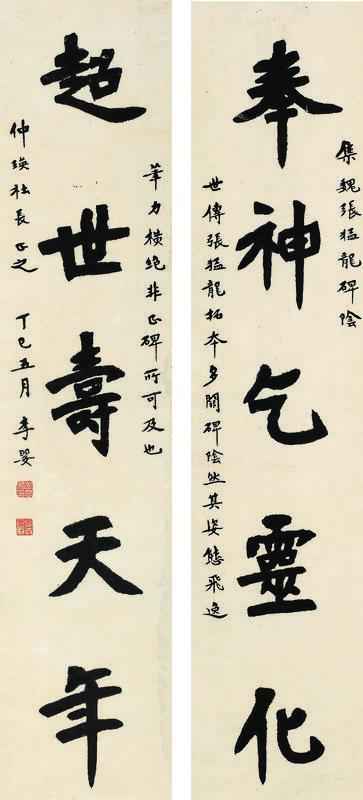 集魏張猛龍碑陰
奉神乞靈化
世傳張猛龍拓本多闕碑陰然其姿態飛逸
筆力橫絶非正碑所可及也
超世壽天年
仲瑛社長正之
丁巳五月 李嬰